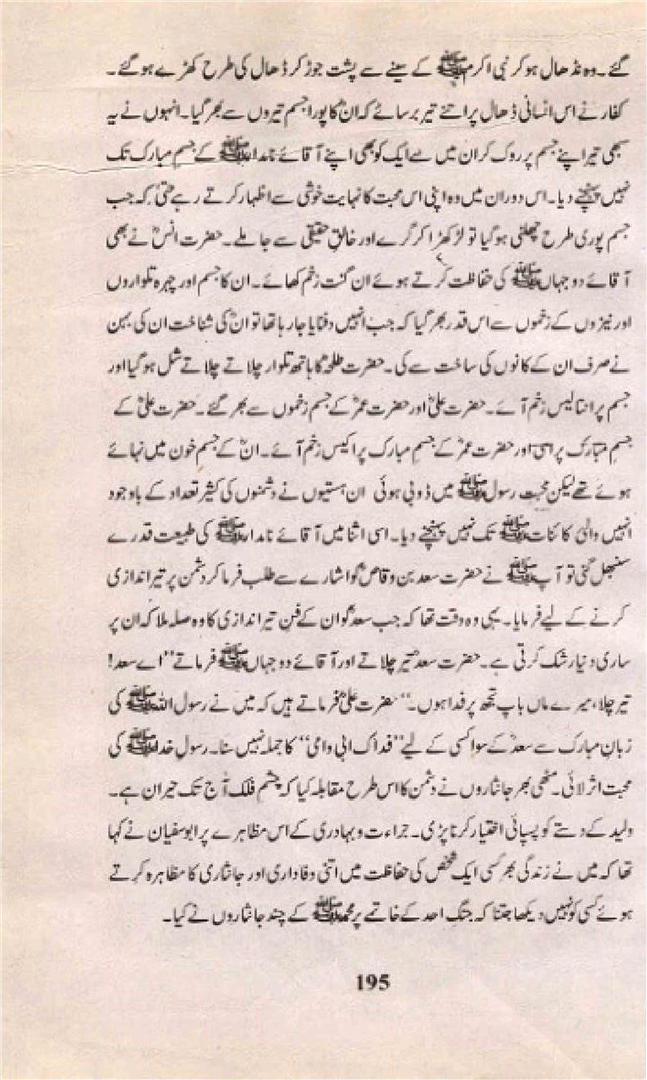 گئے۔ وہ نڈھال ہو کر نبی اکرم ﷺ کے سینے سے پشت جوڑ کر ڈھال کی طرح کھڑے ہو گئے۔
کفار نے اس انسانی ڈھال پر اتنے تیر برسائے کہ انؓ کا پورا جسم تیروں سے بھر گیا۔ انہوں نے یہ
سبھی تیر اپنے جسم پر روک کر ان میں سے ایک کو بھی اپنے آقائے نامدار ﷺ کے جسمِ مبارک تک
نہیں پہنچنے دیا۔ اس دوران میں وہ اپنی اس محبت کا نہایت خوشی سے اظہار کرتے رہے حتیٰ کہ جب
جسم پوری طرح چھلنی ہو گیا تو لڑکھڑا کر گرے اور خالقِ حقیقی سے جا ملے۔ حضرت انسؓ نے بھی
آقائے دو جہاں ﷺ کی حفاظت کرتے ہوئے ان گنت زخم کھائے۔ ان کا جسم اور چہرہ تلواروں
اور نیزوں کے زخموں سے اس قدر بھر گیا کہ جب انہیں دفنایا جا رہا تھا تو انؓ کی شناخت ان کی بہن
نے صرف ان کے کانوں کی ساخت سے کی۔ حضرت طلحہؓ کا ہاتھ تلوار چلاتے چلاتے شل ہو گیا اور
جسم پر انتالیس زخم آئے۔ حضرت علیؓ اور حضرت عمرؓ کے جسم زخموں سے بھر گئے۔ حضرت علیؓ کے
جسمِ مبارک پر اسی اور حضرت عمرؓ کے جسمِ مبارک پر اکیس زخم آئے۔ انؓ کے جسم خون میں نہائے
ہوئے تھے لیکن محبت رسول ﷺ میں ڈوبی ہوئی ان ہستیوں نے دشمنوں کی کثیر تعداد کے باوجود
انہیں والئی کائنات ﷺ تک نہیں پہنچنے دیا۔ اسی اثنا میں آقائے نامدار ﷺ کی طبیعت قدرے
سنبھل گئی تو آپ ﷺ نے حضرت سعد بن وقاصؓ کو اشارے سے طلب فرما کر دشمن پر تیر اندازی
کرنے کے لیے فرمایا۔ یہی وہ وقت تھا کہ جب سعدؓ کو ان کے فنِ تیر اندازی کا وہ صلہ ملا کہ ان پر
ساری دنیا رشک کرتی ہے۔ حضرت سعدؓ تیر چلاتے اور آقائے دو جہاں ﷺ فرماتے ”اے سعد!
تیر چلا، میرے ماں باپ تجھ پر فدا ہوں۔“ حضرت علیؓ فرماتے ہیں کہ میں نے رسول اللہ ﷺ کی
زبانِ مبارک سے سعدؓ کے سوا کسی کے لیے ”فداک ابی و امی“ کا جملہ نہیں سنا۔ رسولِ خدا ﷺ کی
محبت اثر لائی۔ مٹھی بھر جانثاروں نے دشمن کا اس طرح مقابلہ کیا کہ چشم فلک آج تک حیران ہے۔
ولید کے دستے کو پسپائی اختیار کرنا پڑی۔ جراءت و بہادری کے اس مظاہرے پر ابو سفیان نے کہا
تھا کہ میں نے زندگی بھر کسی ایک شخص کی حفاظت میں اتنی وفاداری اور جانثاری کا مظاہرہ کرتے
ہوئے کسی کو نہیں دیکھا جتنا کہ جنگِ احد کے خاتمے پر محمد ﷺ کے چند جانثاروں نے کیا۔
195